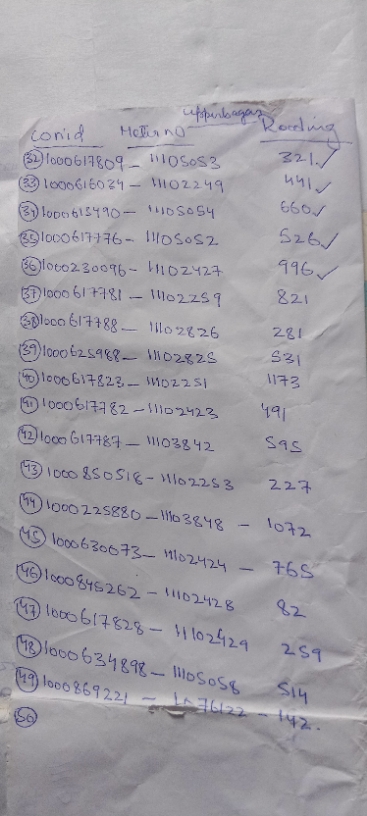 Con.id Meter no Reading
(32) 1000617809 - 11105053 321 ✓
(33) 1000616034 - 11102249 441 ✓
(34) 1000615490 - 11105054 660 ✓
(35) 1000617776 - 11105052 526 ✓
(36) 1000230096 - 11102427 996 ✓
(37) 1000617781 - 11102259 821
(38) 1000617788 - 11102826 281
(39) 1000625988 - 11102825 531
(40) 1000617823 - 11102251 1173
(41) 1000617782 - 11102423 491
(42) 1000617787 - 11103842 595
(43) 1000850518 - 11102253 227
(44) 1000225880 - 11103848 - 1072
(45) 1000630073 - 11102424 - 765
(46) 1000845262 - 11102428 82
(47) 1000617828 - 11102429 259
(48) 1000634898 - 11105058 514
(49) 1000869221 - 76122 - 142.
(50)